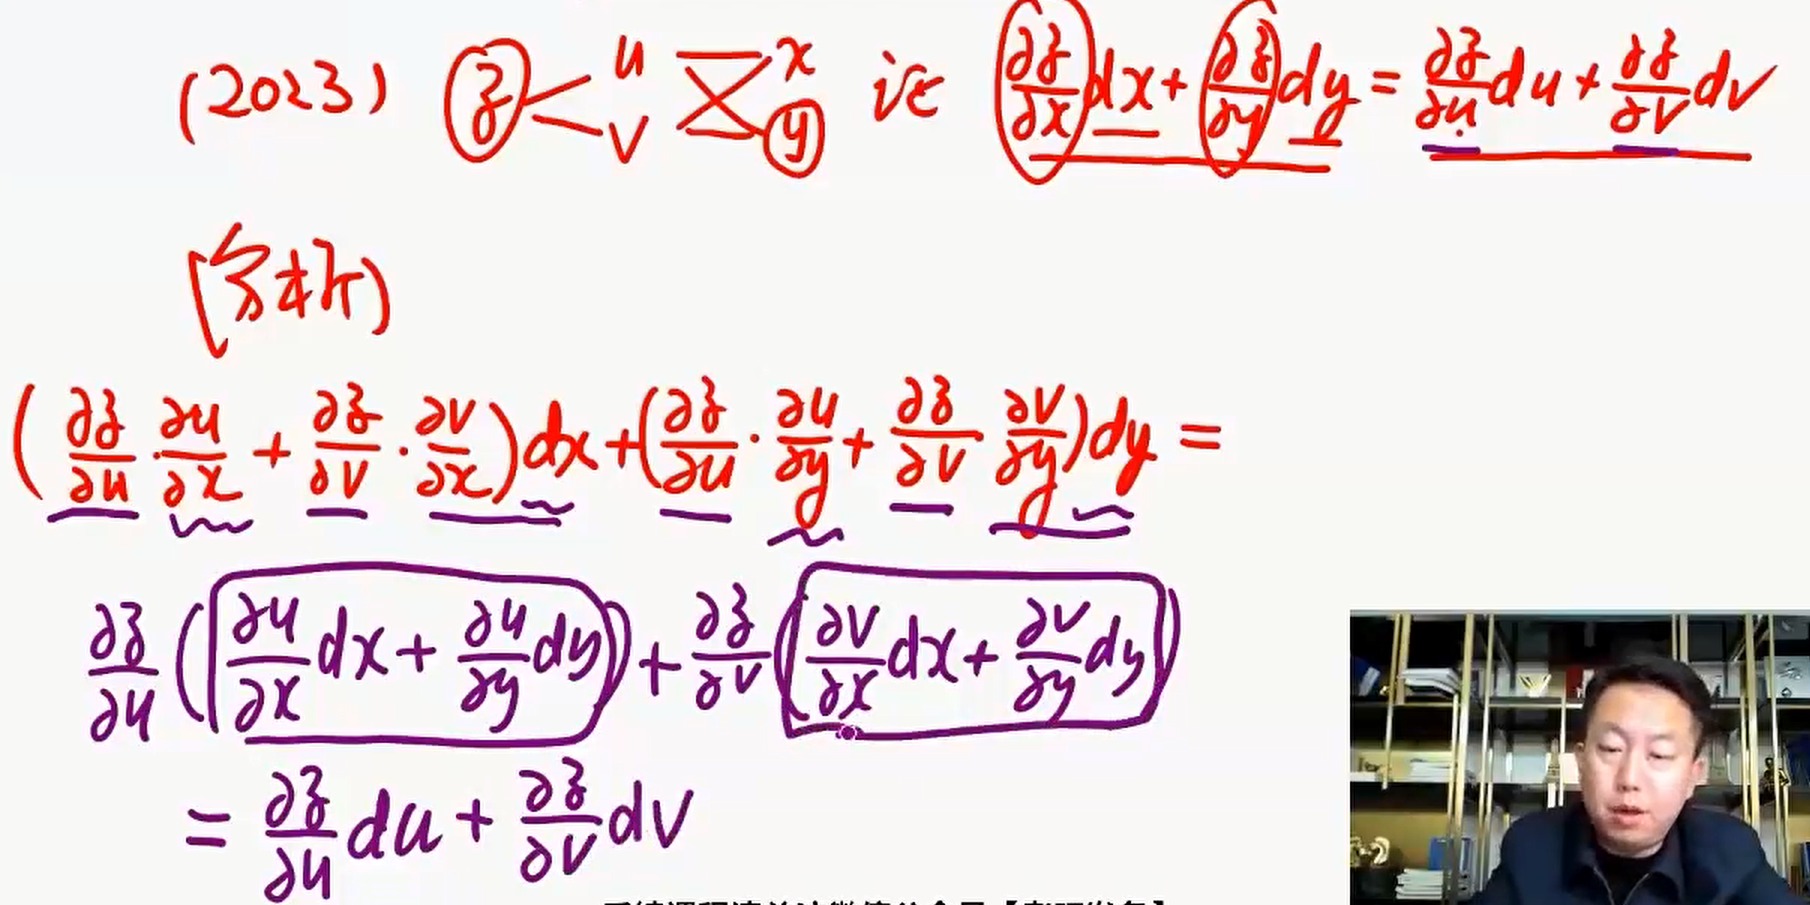 (2023) z u v x y 证 ∂z/∂x dx + ∂z/∂y dy = ∂z/∂u du + ∂z/∂v dv
[分析)
(∂z/∂u · ∂u/∂x + ∂z/∂v · ∂v/∂x) dx + (∂z/∂u · ∂u/∂y + ∂z/∂v ∂v/∂y) dy =
∂z/∂u (∂u/∂x dx + ∂u/∂y dy) + ∂z/∂v (∂v/∂x dx + ∂v/∂y dy)
= ∂z/∂u du + ∂z/∂v dv